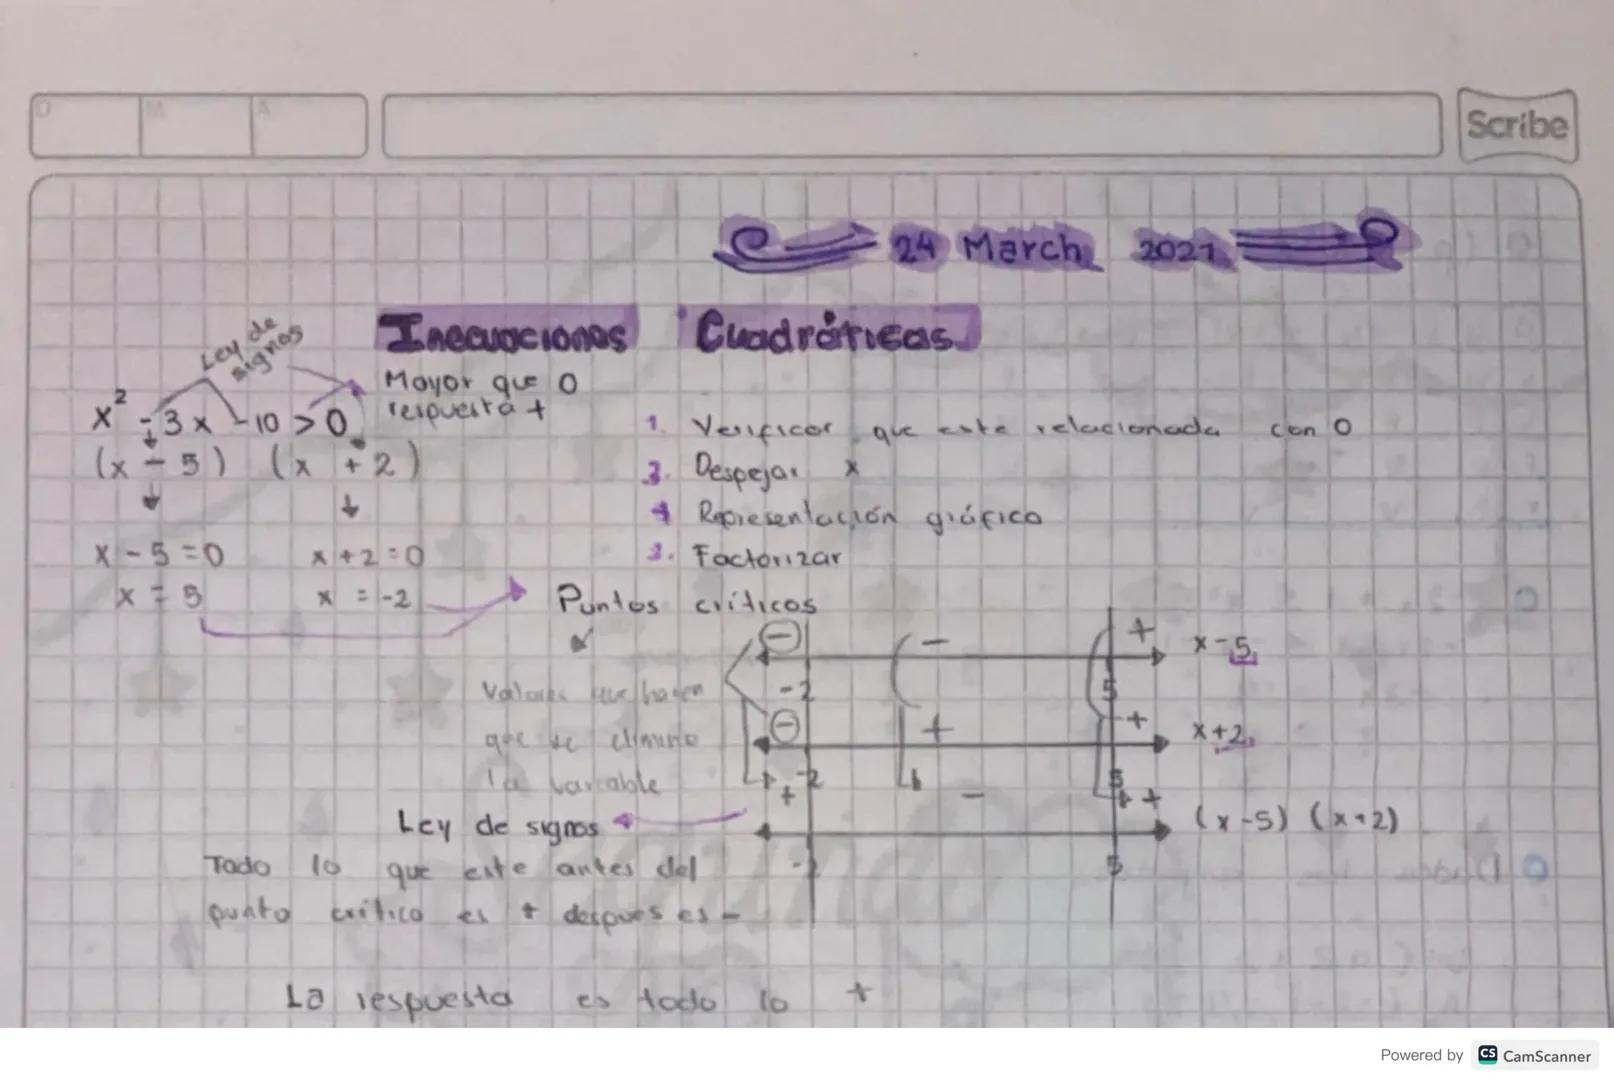 D M A
Scribe
24 March 2021
Inecuaciones Cuadráticas
Ley de signos
Mayor que 0
respuesta +
x² - 3x - 10 > 0
(x - 5) (x + 2)
x - 5 = 0 x + 2 = 0
x = 5 x = -2
1. Verificar que este relacionada con 0
3. Despejar x
4 Representación gráfica
2. Factorizar
Puntos críticos
Valores que hacen
que se elimine
la variable
- - + x - 5
-2 5
- + + x + 2
-2 5
+ - + (x - 5) (x + 2)
-2 5
Ley de signos
Todo lo que este antes del
punto critico es + despues es -
La respuesta es todo lo +
Powered by CS CamScanner